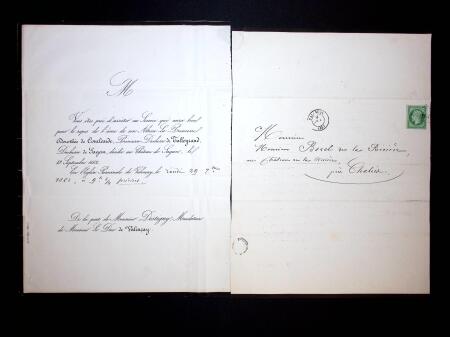 M
Vous êtes prié d'assister au Service qui aura lieu
pour le repos de l'âme de son Altesse la Princesse
Dorothée de Courlande, Princesse Duchesse de Talleyrand,
Duchesse de Sagan, décédée au Château de Sagan, le
19 Septembre 1862
En l'Eglise Paroissiale de Valençay, le lundi 29 7bre
1862, à 9h 1/2 précises
De la part de Monsieur Mandataire
de Monsieur le Duc de Valençay
Monsieur
Monsieur Borel de la
au Château de la
près